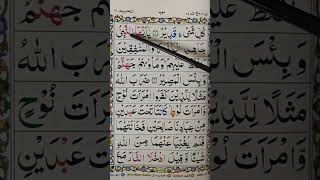 كُلِّ شَىْءٍ قَدِيْرٌ ۝ يٰۤاَيُّهَا النَّبِىُّ
جَاهِدِ الْكُفَّارَ وَالْمُنٰفِقِيْنَ
عَلَيْهِمْ ؕ وَمَاْوٰىهُمْ جَهَنَّمُ ؕ
وَبِئْسَ الْمَصِيْرُ ۝ ضَرَبَ اللّٰهُ
مَثَلًا لِّلَّذِيْنَ كَفَرُوا امْرَاَتَ نُوْحٍ
وَّامْرَاَتَ لُوْطٍ ؕ كَانَتَا تَحْتَ عَبْدَيْنِ
مِنْ عِبَادِنَا صَالِحَيْنِ فَخَانَتٰهُمَا
فَلَمْ يُغْنِيَا عَنْهُمَا مِنَ اللّٰهِ
شَيْـًٔا وَّقِيْلَ ادْخُلَا النَّارَ مَعَ